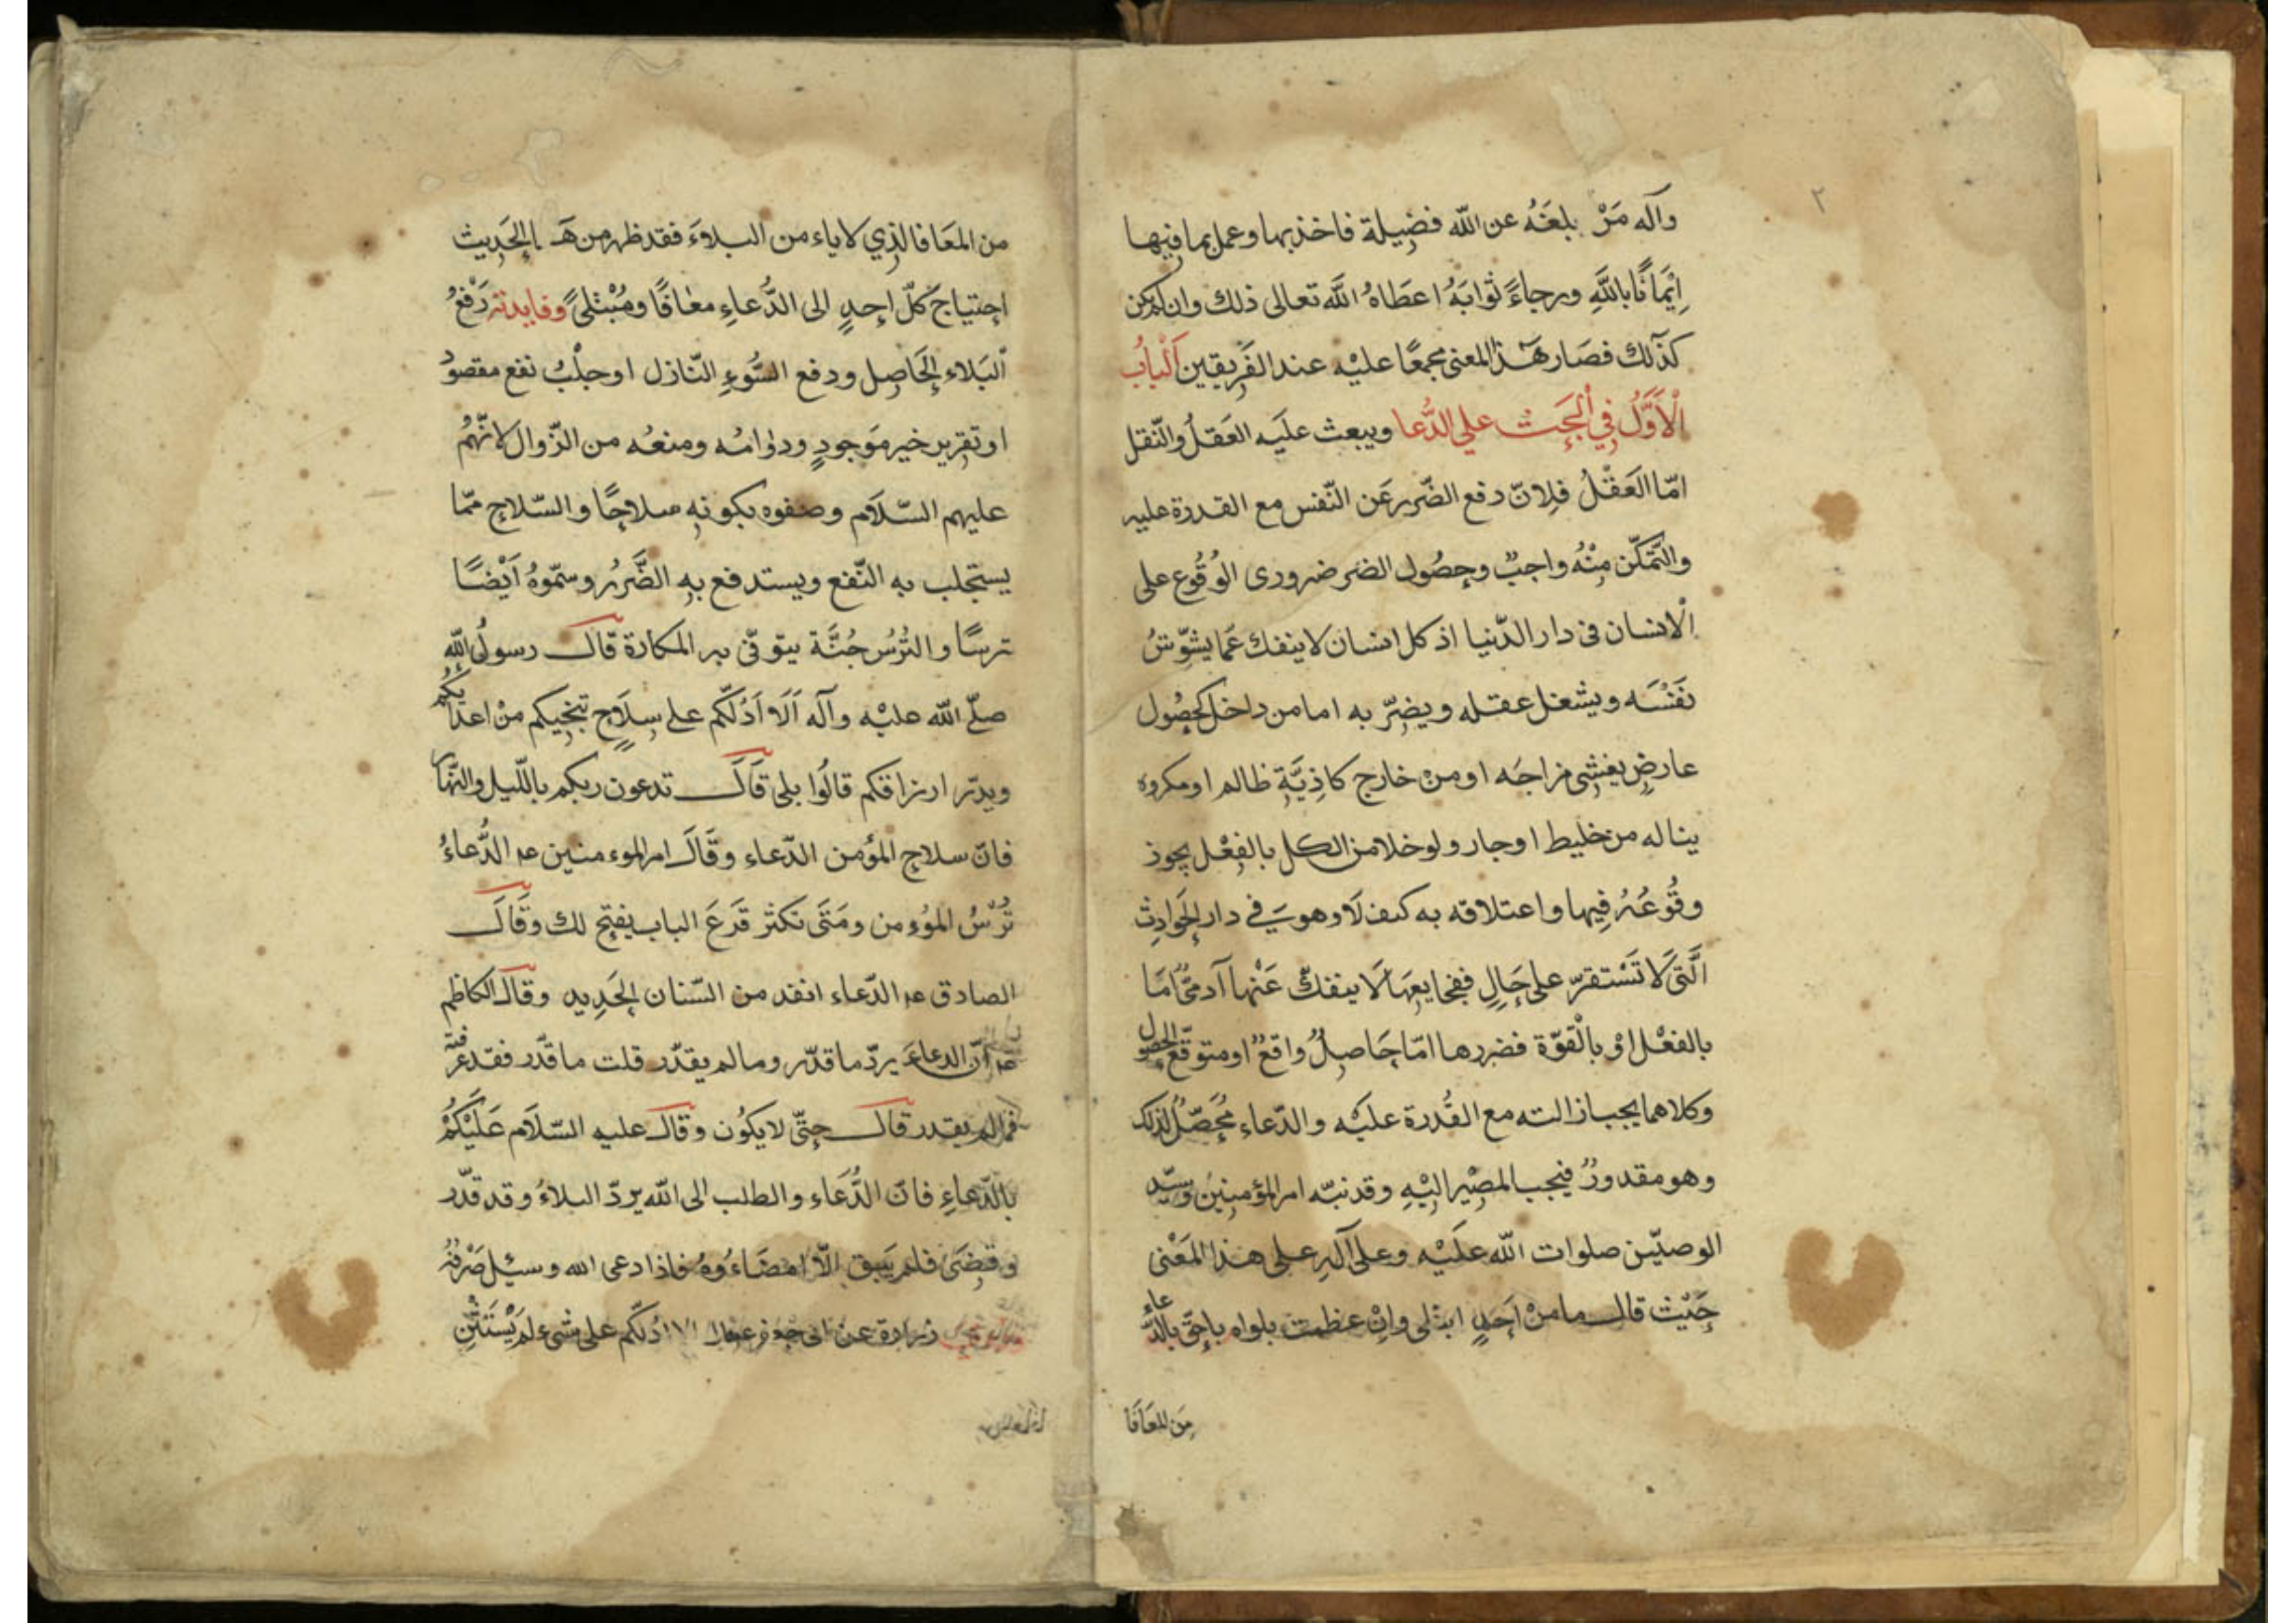 ٢
وآله مَنْ بلغَهُ عن الله فضيلة فاخذ بها وعمل بما فيها
اِيْمَانًا باللَّهِ ورجاءً ثوابَهُ اعطَاهُ الله تعالى ذلك وان لم يكن
كذلك فصَار هَذا المعنى مجمعًا عليْه عند الفَريقين اَلْبابُ
الْاَوَّلُ فِي الْحَثِّ علي الدُّعا ويبعث علَيه العَقلُ والنّقل
امّا العَقْلُ فلِانّ دفع الضّرر عَن النّفس مع القدرة عليه
والتَّمكّن مِنْهُ واجبٌ وحصُول الضرر ضرورى الوُقُوع على
الْانسان فى دار الدّنيا اذ كل انسان لا ينفك عَمَا يشوِّشُ
نَفْسَه ويشغل عقله ويضِرّ به اما من داخل كحصُول
عارضٍ يغشى مزاجَه او منْ خارج كاذِيَّةِ ظالم او مكروه
يناله من خليط او جار ولو خلا من الكل بالفِعْل يجوز
وقُوعُهُ فِيها واعتلاقه به كيف لَا وهو في دار الحَوادِث
الَّتى لَا تَسْتقرّ على حَالٍ ففجايعهَا لَا ينفكّ عَنْها آدمىٌّ اَمَا
بالفعْل اوْ بالْقوّة فضررها امّا حَاصِلٌ واقعٌ او متوقّع الحصول
وكلاهما يجب ازالته مع القُدرة عليْه والدّعاء مُحَصِّلٌ لذلك
وهو مقدورٌ فيجب المصِيْر اليْهِ وقد نبّه امر المؤمنِيْن وسيّد
الوصيّين صلوات الله علَيْه وعلى آلِهِ على هذا المَعْنى
حَيْث قال ما منْ اَحَدٍ ابتلى واِنْ عظمت بلواه باحقّ بالدّعاء
مِن المعَافَا
من المعَافا الذي لا ياء من البلاءَ فقد ظهر من هَـ ـا الحَدِيث
احتياج كلّ احدٍ الى الدُّعاءِ معَافًا ومُبْتلىً وفايدته رَفْعُ
البَلاء الحَاصِل ودفع السُّوءِ النّازل او جلْبُ نفع مقصودٍ
او تقرير خير مَوجودٍ ودوامُه ومنعُه من الزّوال لانّهمْ
عليهم السّلَام وصفوه بكونهِ سلاحًا والسّلاح ممّا
يستجلب به النّفع ويستدفع بهِ الضَّررُ وسمّوهُ اَيْضًا
ترسًا والتُرسُ جُنَّة يتوقّى بر المكارة قَال رسولُ اللهِ
صلّى الله عليْه وآله اَلَا اَدُلّكم على سِلَاحٍ تنجيكم منْ اعدايكم
ويدرّ ارزاقكم قالُوا بلى قَالَ تدعون ربكم بالّليل والنّهار
فانّ سلاح المؤمن الدّعاء وقَالَ امر الموءمنين عه الدُّعاءُ
تُرْسُ المؤمن ومَتَى تكثر قَرعَ الباب يفتح لك وقَالَ
الصادق عه الدّعاء انفد من السّنان الحَدِيد وقال الكاظم
عه انّ الدعاءَ يردّ ما قدّر وما لم يقدّر قلت ما قدّر فقد عرفته
فما لم يقدر قال حتّى لا يكُون وقال عليه السّلَام عَلَيْكُمْ
بالدّعاءِ فانّ الدُّعَاء والطلب الى الله يردّ البلاءُ وقد قدّر
وقضَى فلم يَبق الّا امضَاءُوهُ فاذا دعى الله وسيئل صَرْفَهُ
زرارة عن ابى جعفر عه الا اَدُلّكم على شىء لم يَسْتَثْنِ